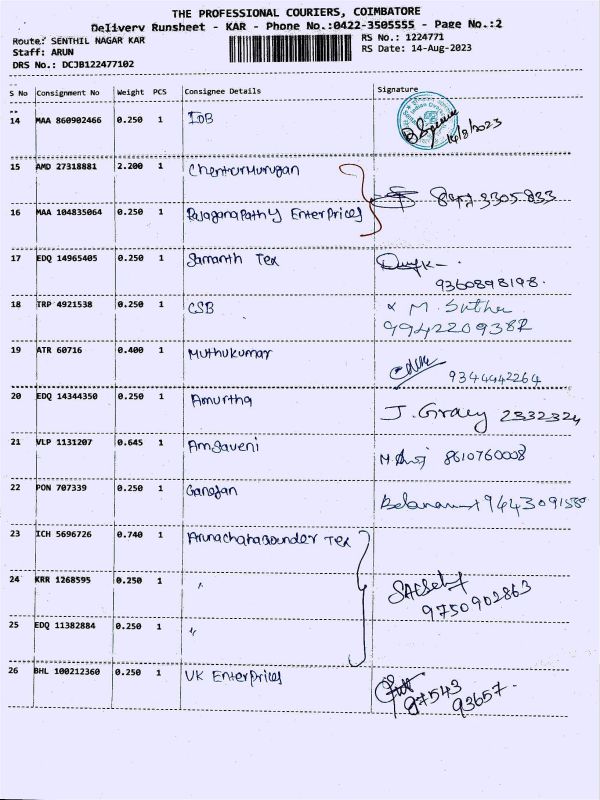 THE PROFESSIONAL COURIERS, COIMBATORE
Delivery Runsheet - KAR - Phone No.:0422-3505555 - Page No.:2
Route: SENTHIL NAGAR KAR
RS No.: 1224771
Staff: ARUN
RS Date: 14-Aug-2023
DRS No.: DCJB122477102
S No Consignment No Weight PCS Consignee Details Signature
14 MAA 860902466 0.250 1 IDB
14/8/2023
15 AMD 27318881 2.200 1 Chenturmurugan
16 MAA 104835064 0.250 1 Rajaganapathy Enterprices
17 EDQ 14965405 0.250 1 Samanth Tex
9360898198
18 TRP 4921538 0.250 1 CSB
9942209382
19 ATR 60716 0.400 1 Muthukumar
9344442264
20 EDQ 14344350 0.250 1 Amurtha J. Graey 2332324
21 VLP 1131207 0.645 1 Amsaveni 8610760008
22 PON 707339 0.250 1 Ganesan
23 ICH 5696726 0.740 1 Arunachalagounder Tex
24 KRR 1268595 0.250 1 "
9750902863
25 EDQ 11382884 0.250 1 "
26 BHL 100212360 0.250 1 UK Enterprices
97543
93657